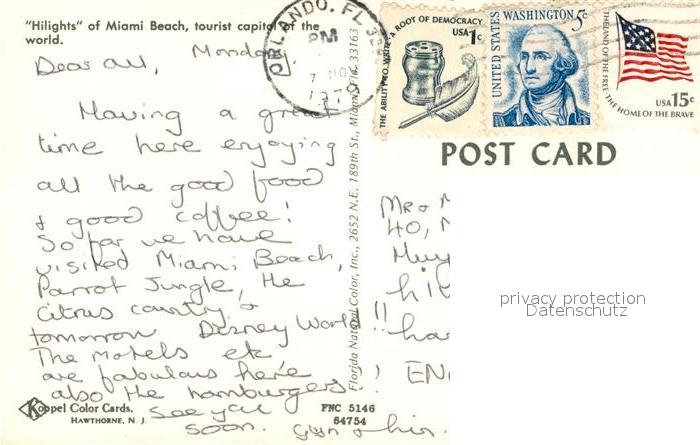 "Hilights" of Miami Beach, tourist capitol of the
world.
Dear all, Monday
Having a great
time here enjoying
all the good food
& good coffee!
So far we have
visited Miami Beach,
Parrot Jungle, the
Citrus country &
tomorrow Disney World!!
The Motels etc
are fabulous here
also the hamburgers!
See you
soon.
Koppel Color Cards.
HAWTHORNE, N. J.
FNC 5146
64754
Florida Natural Color, Inc., 2652 N.E. 189th St., Miami, Fla. 33163
ORLANDO, FL
PM
7 NOV
1979
THE ABILITY TO WRITE · A ROOT OF DEMOCRACY
USA 1c
UNITED STATES
WASHINGTON 5c
THE LAND OF THE FREE · THE HOME OF THE BRAVE
USA 15c
POST CARD
MR &
40,
privacy protection
Datenschutz